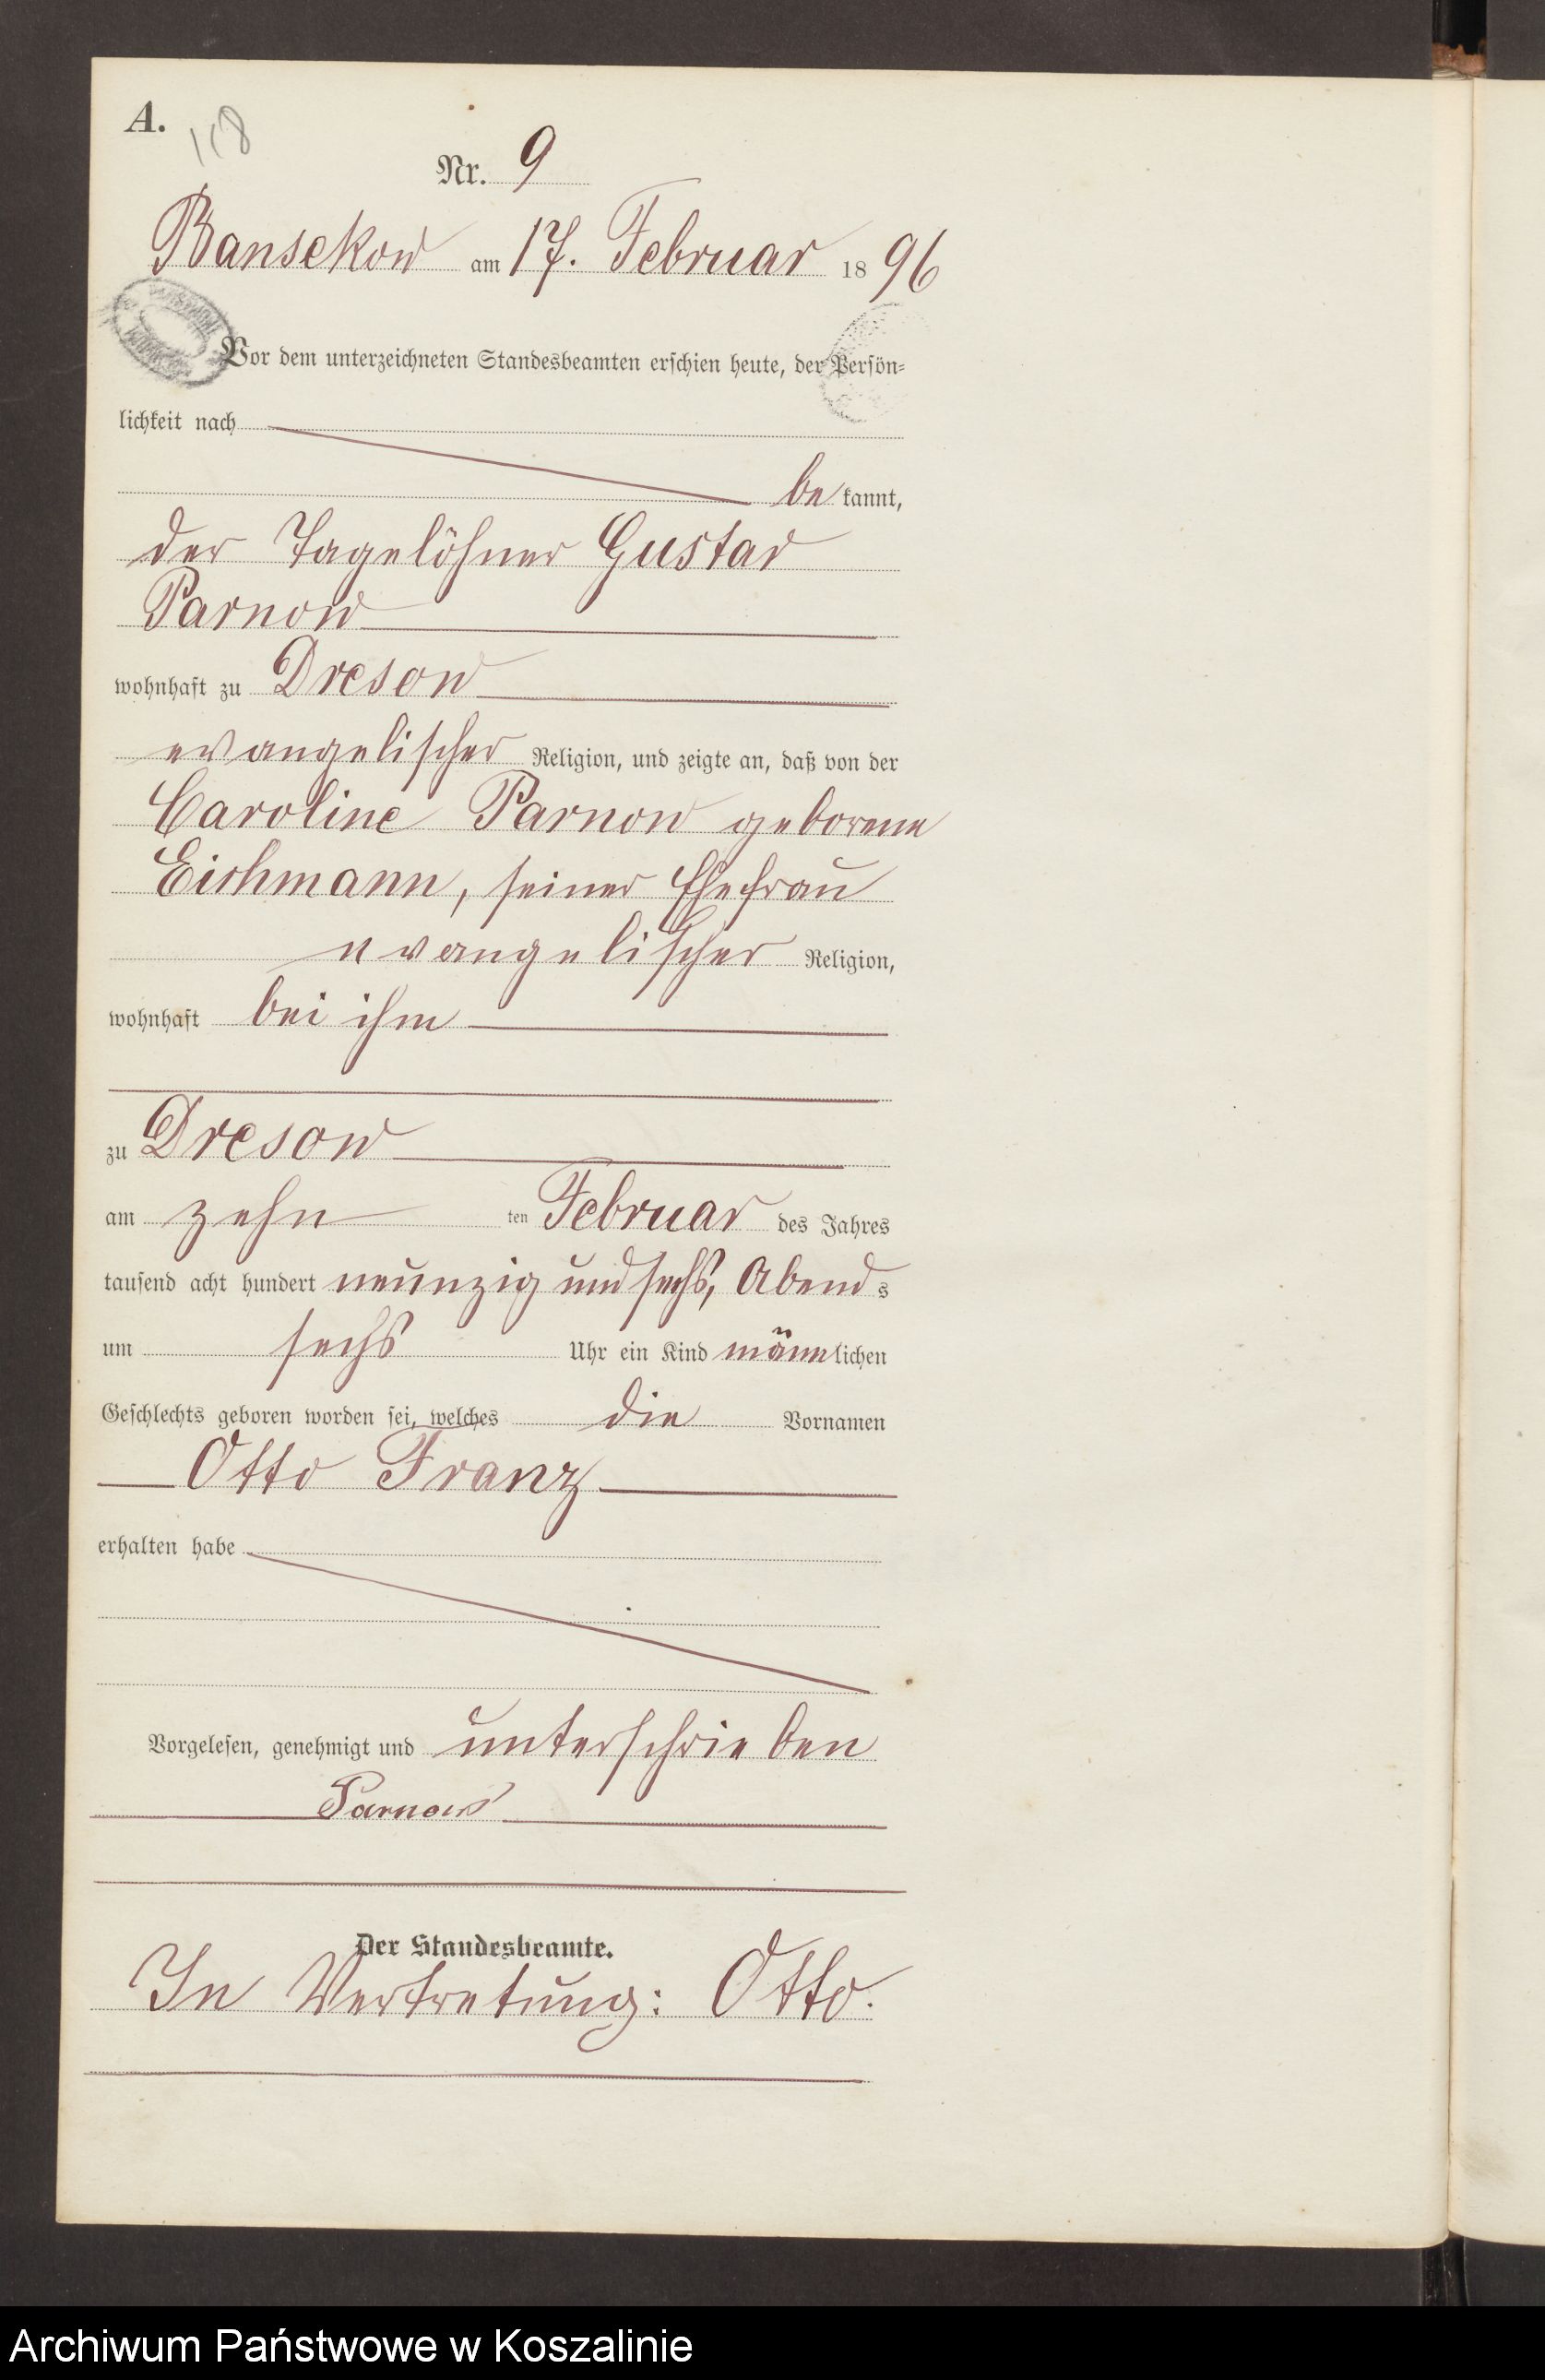 A.
118
Nr. 9
Bansekow am 17. Februar 1896
Vor dem unterzeichneten Standesbeamten erschien heute, der Persön-
lichkeit nach
bekannt,
der Tagelöhner Gustav
Parnow
wohnhaft zu Dresow
evangelischer Religion, und zeigte an, daß von der
Caroline Parnow geborene
Eichmann, seiner Ehefrau
evangelischer Religion,
wohnhaft bei ihm
zu Dresow
am zehn ten Februar des Jahres
tausend acht hundert neunzig und sechs, Abends
um sechs Uhr ein Kind männlichen
Geschlechts geboren worden sei, welches die Vornamen
Otto Franz
erhalten habe
Vorgelesen, genehmigt und unterschrieben
Parnow
Der Standesbeamte.
In Vertretung: Otto.
Archiwum Państwowe w Koszalinie